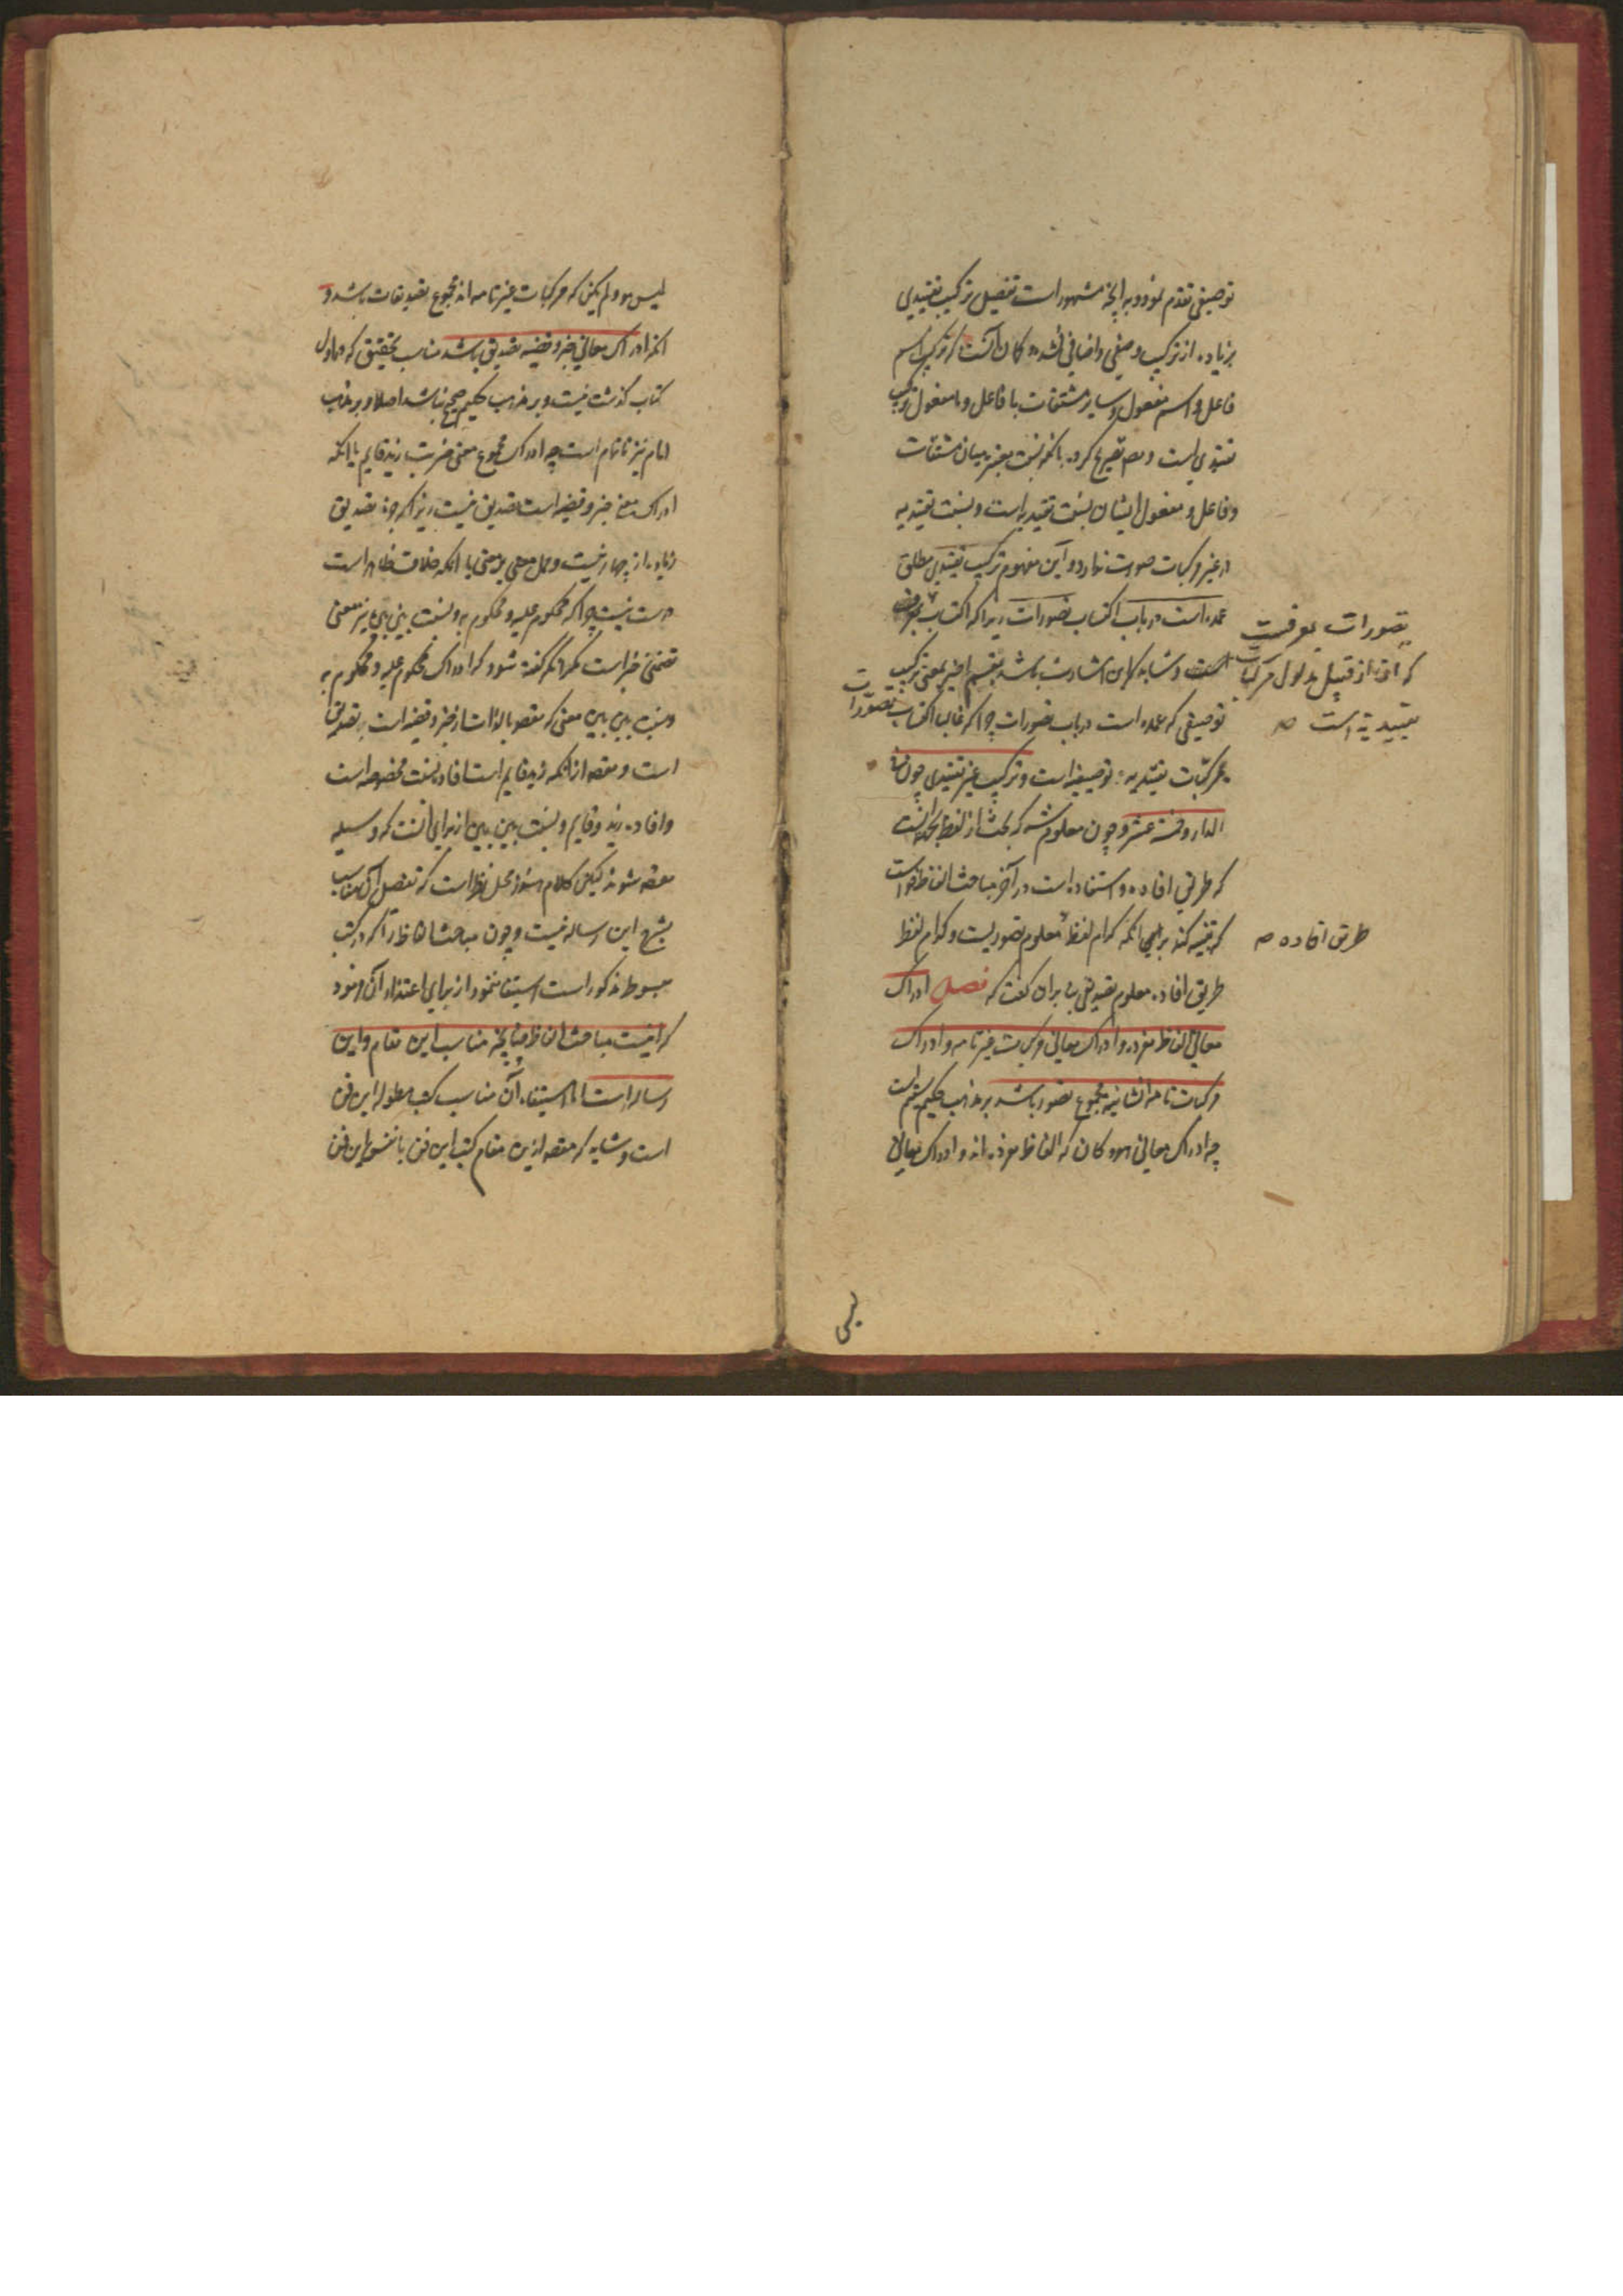 توصیفی تقدم نمود و به آنچه مشهور است تفصیل ترکیب تقییدی
بزیاده از ترکیب وصفی و اضافی نشد کان آنست که ترکیب اسم
فاعل و اسم مفعول و سایر مشتقات با فاعل و با مفعول ترکیب
تقییدی است و تصریح کرد بآنکه نسبت معتبر میان مشتقات
و فاعل و مفعول ایشان نسبت تقییدیه است و نسبت تقییدیه
در غیر مرکبات صورت ندارد و این مفهوم ترکیب تقییدی مطلق
عمده است در باب اکتساب تصورات زیرا که اکتساب
تصورات بمعرفست
که آن از قبیل مدلول مرکبات
تقییدیه است صح
است و شاید که این اشارت باشد بقسم اخیر یعنی ترکیب
توصیفی که عمده است در باب تصورات چرا که غالبا اکتساب تصورات
بمرکبات تقییدیه توصیفیه است و ترکیب غیر تقییدی چون فی
الدار و خمسة عشر و چون معلوم شد که بحث از لفظ بجهة آنست
که طریق افاده و استفاده است در آخر مباحث الفاظ خواست
که تنبیه کند برای آنکه کدام لفظ معلوم تصوریست و کدام لفظ
طریق افاده صح
طریق افاده معلوم تصدیقی بنا بران گفت که فصل ادراک
معانی الفاظ مفرده و ادراک معانی مرکبات غیر تامه و ادراک
مرکبات تامه انشائیه مجموع تصور باشد بر مذهب حکیم مستقیم است
چه ادراک معانی هو و کان که الفاظ مفرده اند و ادراک معانی
لیس
لیس هو و لم یکن که مرکبات غیر تامه اند مجموع تصدیقات باشد و
اگر ادراک معانی خبر و قضیه تصدیق باشد مناسب تحقیق که در اول
کتاب گذشت نیست و بر مذهب حکیم صحیح نباشد اصلا و بر مذهب
امام نیز ناتمام است چه ادراک مجموع معنی ضربت زید قایم با آنکه
ادراک معنی خبر و قضیه است تصدیق نیست زیرا که جزء تصدیق
زیاده از چهار نیست و حمل معنی بر معنی با آنکه خلاف ظاهر است
درست نیست چرا که محکوم علیه و محکوم به و نسبت بین بین نیز معنی
تضمنی خبر است مگر آنکه گفته شود که ادراک محکوم علیه و محکوم به
و نسبت بین بین معنی که مقصود بالذات از خبر و قضیه است تصدیق
است و مقصد از آنکه زید قایم است افاده نسبت مخصوصه است
و افاده زید و قایم و نسبت بین بین از برای آنست که وسیله
مقصد شوند لیکن کلام هنوز محل نظر است که تفصیل آن مناسب
بشرح این رساله نیست و چون مباحث الفاظ را که در کتب
مبسوط مذکور است استیفا ننمود از برای اعتذار آن فرمود
که اینست مباحث الفاظ چنانچه مناسب این مقام و این
رساله است اما استیفاء آن مناسب کتب مطوله این فن
است و شاید که مقصد ازین مقام کتب این فن با نفس این فن